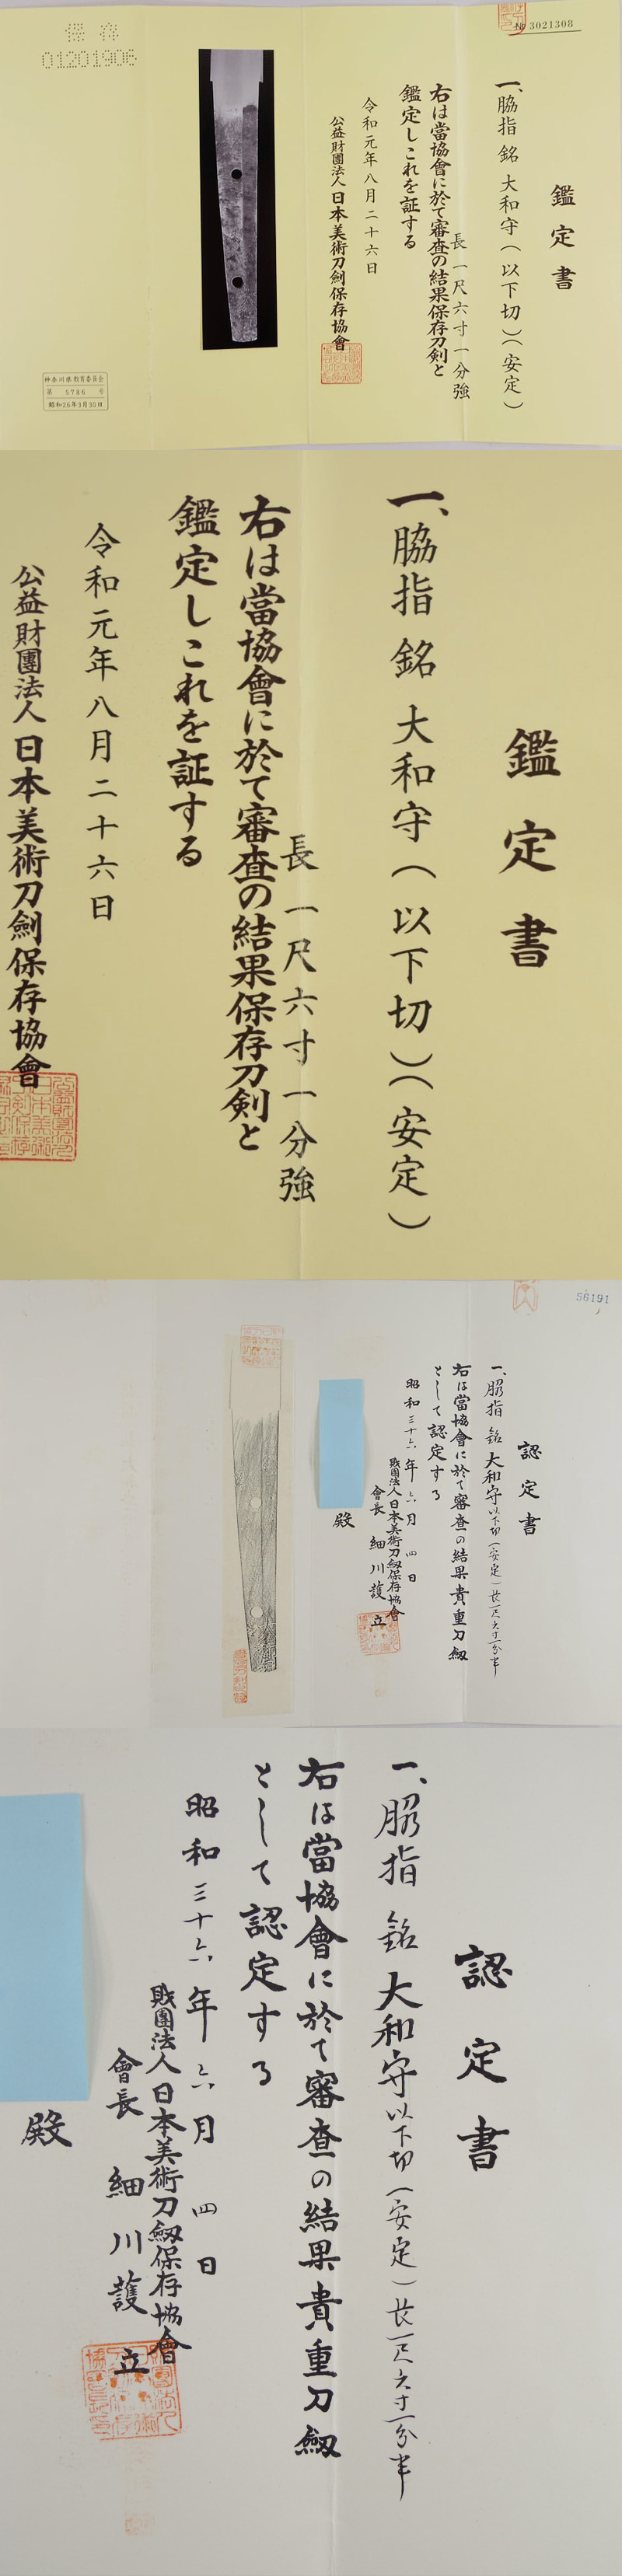 保存
01201906
№ 3021308
鑑定書
一、脇指 銘 大和守(以下切)(安定)
長 一尺六寸一分強
右は當協會に於て審査の結果保存刀剣と
鑑定しこれを証する
令和元年八月二十六日
公益財團法人 日本美術刀劍保存協會
神奈川県教育委員会
第 5786 号
昭和26年3月30日
鑑定書
一、脇指 銘 大和守(以下切)(安定)
長 一尺六寸一分強
右は當協會に於て審査の結果保存刀剣と
鑑定しこれを証する
令和元年八月二十六日
公益財團法人 日本美術刀劍保存協會
56191
認定書
一、脇指 銘 大和守以下切(安定)長一尺六寸一分半
右は當協會に於て審査の結果貴重刀劔
として認定する
昭和三十六年六月四日
財團法人日本美術刀劔保存協會
會長 細川護立
殿
認定書
一、脇指 銘 大和守以下切(安定)長一尺六寸一分半
右は當協會に於て審査の結果貴重刀劔
として認定する
昭和三十六年六月四日
財團法人日本美術刀劔保存協會
會長 細川護立
殿